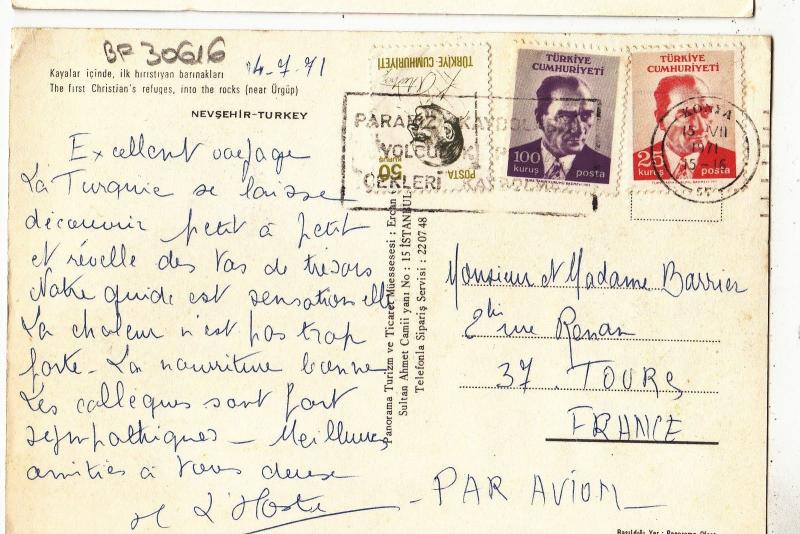 BF 30616
14-7-71
Kayalar içinde, ilk hıristiyan barınakları
The first Christian's refuges, into the rocks (near Ürgüp)
NEVŞEHİR-TURKEY
Excellent voyage
La Turquie se laisse
découvrir petit à petit
et révelle des tas de trésors
Notre guide est sensationnelle
La chaleur n'est pas trop
forte - La nourriture bonne
Les collègues sont fort
sympathiques - Meilleures
amitiés à vous deux
M L'Hoste
TÜRKİYE CUMHURİYETİ
50
KURUŞ
POSTA
TÜRKİYE
CUMHURİYETİ
100
kuruş posta
TÜRKİYE
CUMHURİYETİ
25
kuruş posta
PARANIZ KAYBOLMAZ
YOLCU
ÇEKLERİ KAYBOLMAZ
KONYA
15 VII
1971
15-16
Panorama Turizm ve Ticaret Müessesesi : Ercan
Sultan Ahmet Camii yanı No : 15 İSTANBUL
Telefonla Sipariş Servisi : 22 07 48
Monsieur et Madame Barrier
2bis rue Renan
37. TOURS
FRANCE
- PAR AVION -
Basıldığı Yer : Panorama